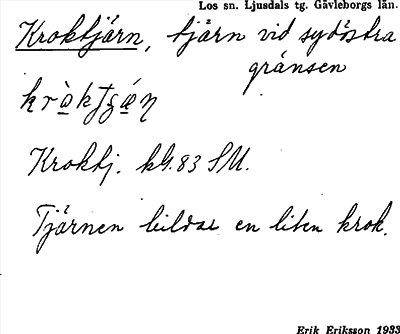 Los sn. Ljusdals tg. Gävleborgs län.
Kroktjärn, tjärn vid sydöstra
gränsen
Kroktj. kG. 83 SU.
Tjärnen bildar en liten krok.
Erik Eriksson 1933